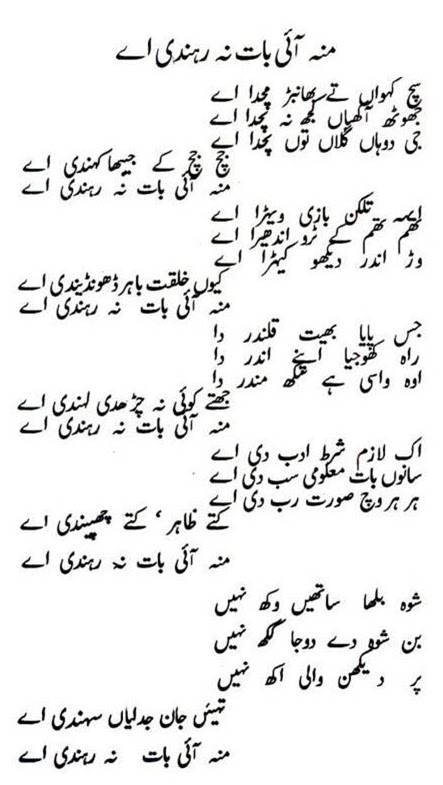 منہ آئی بات نہ رہندی اے
سچ کہواں تے بھانبڑ مچدا اے
جھوٹھ آکھیاں کجھ نہ بچدا اے
جی دوہاں گلاں توں بچدا اے
جچ جچ کے جیبھا کہندی اے
منہ آئی بات نہ رہندی اے
ایہہ تلکن بازی ویہڑا اے
تھم تھم کے ٹرو اندھیرا اے
وڑ اندر دیکھو کیہڑا اے
کیوں خلقت باہر ڈھونڈیندی اے
منہ آئی بات نہ رہندی اے
جس پایا بھیت قلندر دا
راہ کھوجیا اپنے اندر دا
اوہ واسی ہے سکھ مندر دا
جتھے کوئی نہ چڑھدی لہندی اے
منہ آئی بات نہ رہندی اے
اک لازم شرط ادب دی اے
سانوں بات معلومی سب دی اے
ہر ہر وچ صورت رب دی اے
کتے ظاہر، کتے چھپیندی اے
منہ آئی بات نہ رہندی اے
شوہ بلھا ساتھیں وکھ نہیں
بن شوہ دے دوجا ککھ نہیں
پر دیکھن والی اکھ نہیں
تہیئں جان جدائیاں سہندی اے
منہ آئی بات نہ رہندی اے